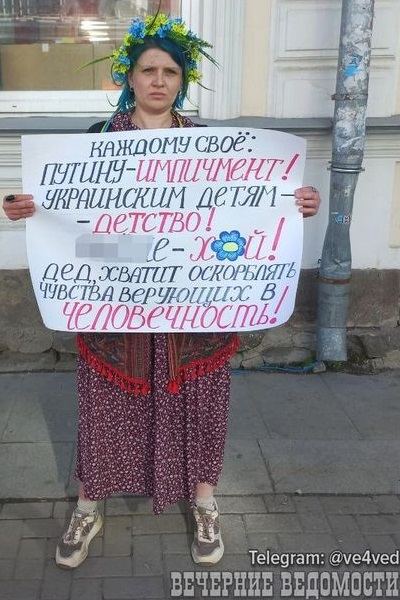 КАЖДОМУ СВОЁ:
ПУТИНУ-ИМПИЧМЕНТ!
УКРАИНСКИМ ДЕТЯМ-
-ДЕТСТВО!
Е-Х Й!
ДЕД, ХВАТИТ ОСКОРБЛЯТЬ
ЧУВСТВА ВЕРУЮЩИХ В
ЧЕЛОВЕЧНОСТЬ!
Telegram: @ve4ved
ВЕЧЕРНИЕ ВЕДОМОСТИ